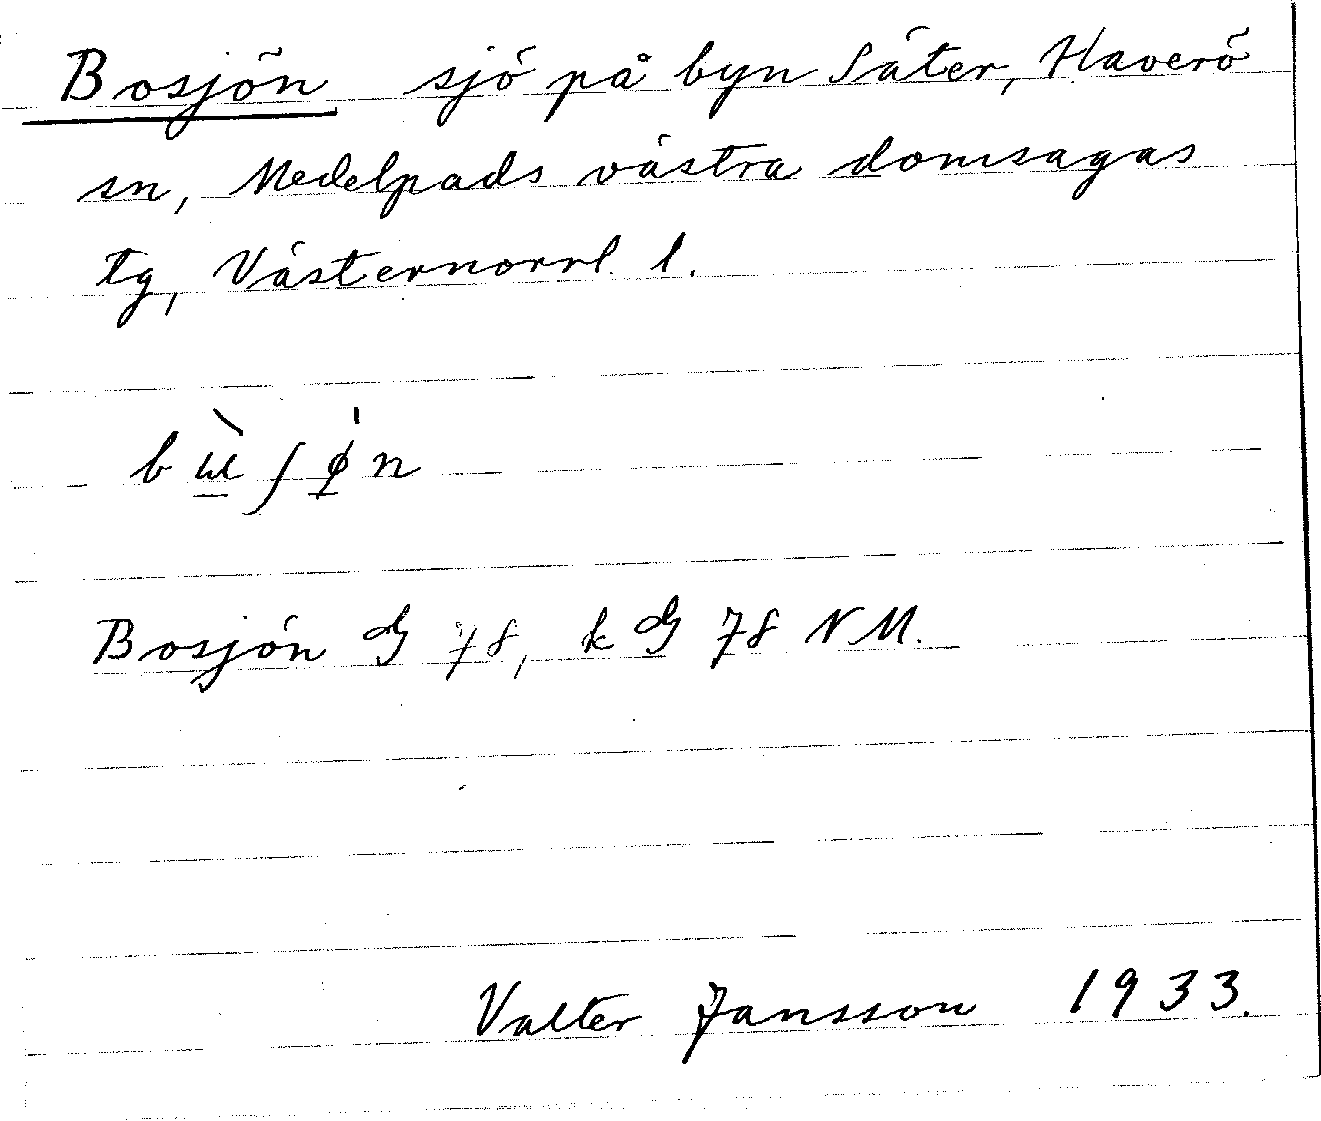 Bosjön sjö på byn Säter, Haverö
sn, Medelpads västra domsagas
tg, Västernorrl. l.
bɯ̲̀ʃø̲̍n
Bosjön G 78, k G 78 N M.
Valter Jansson 1933.